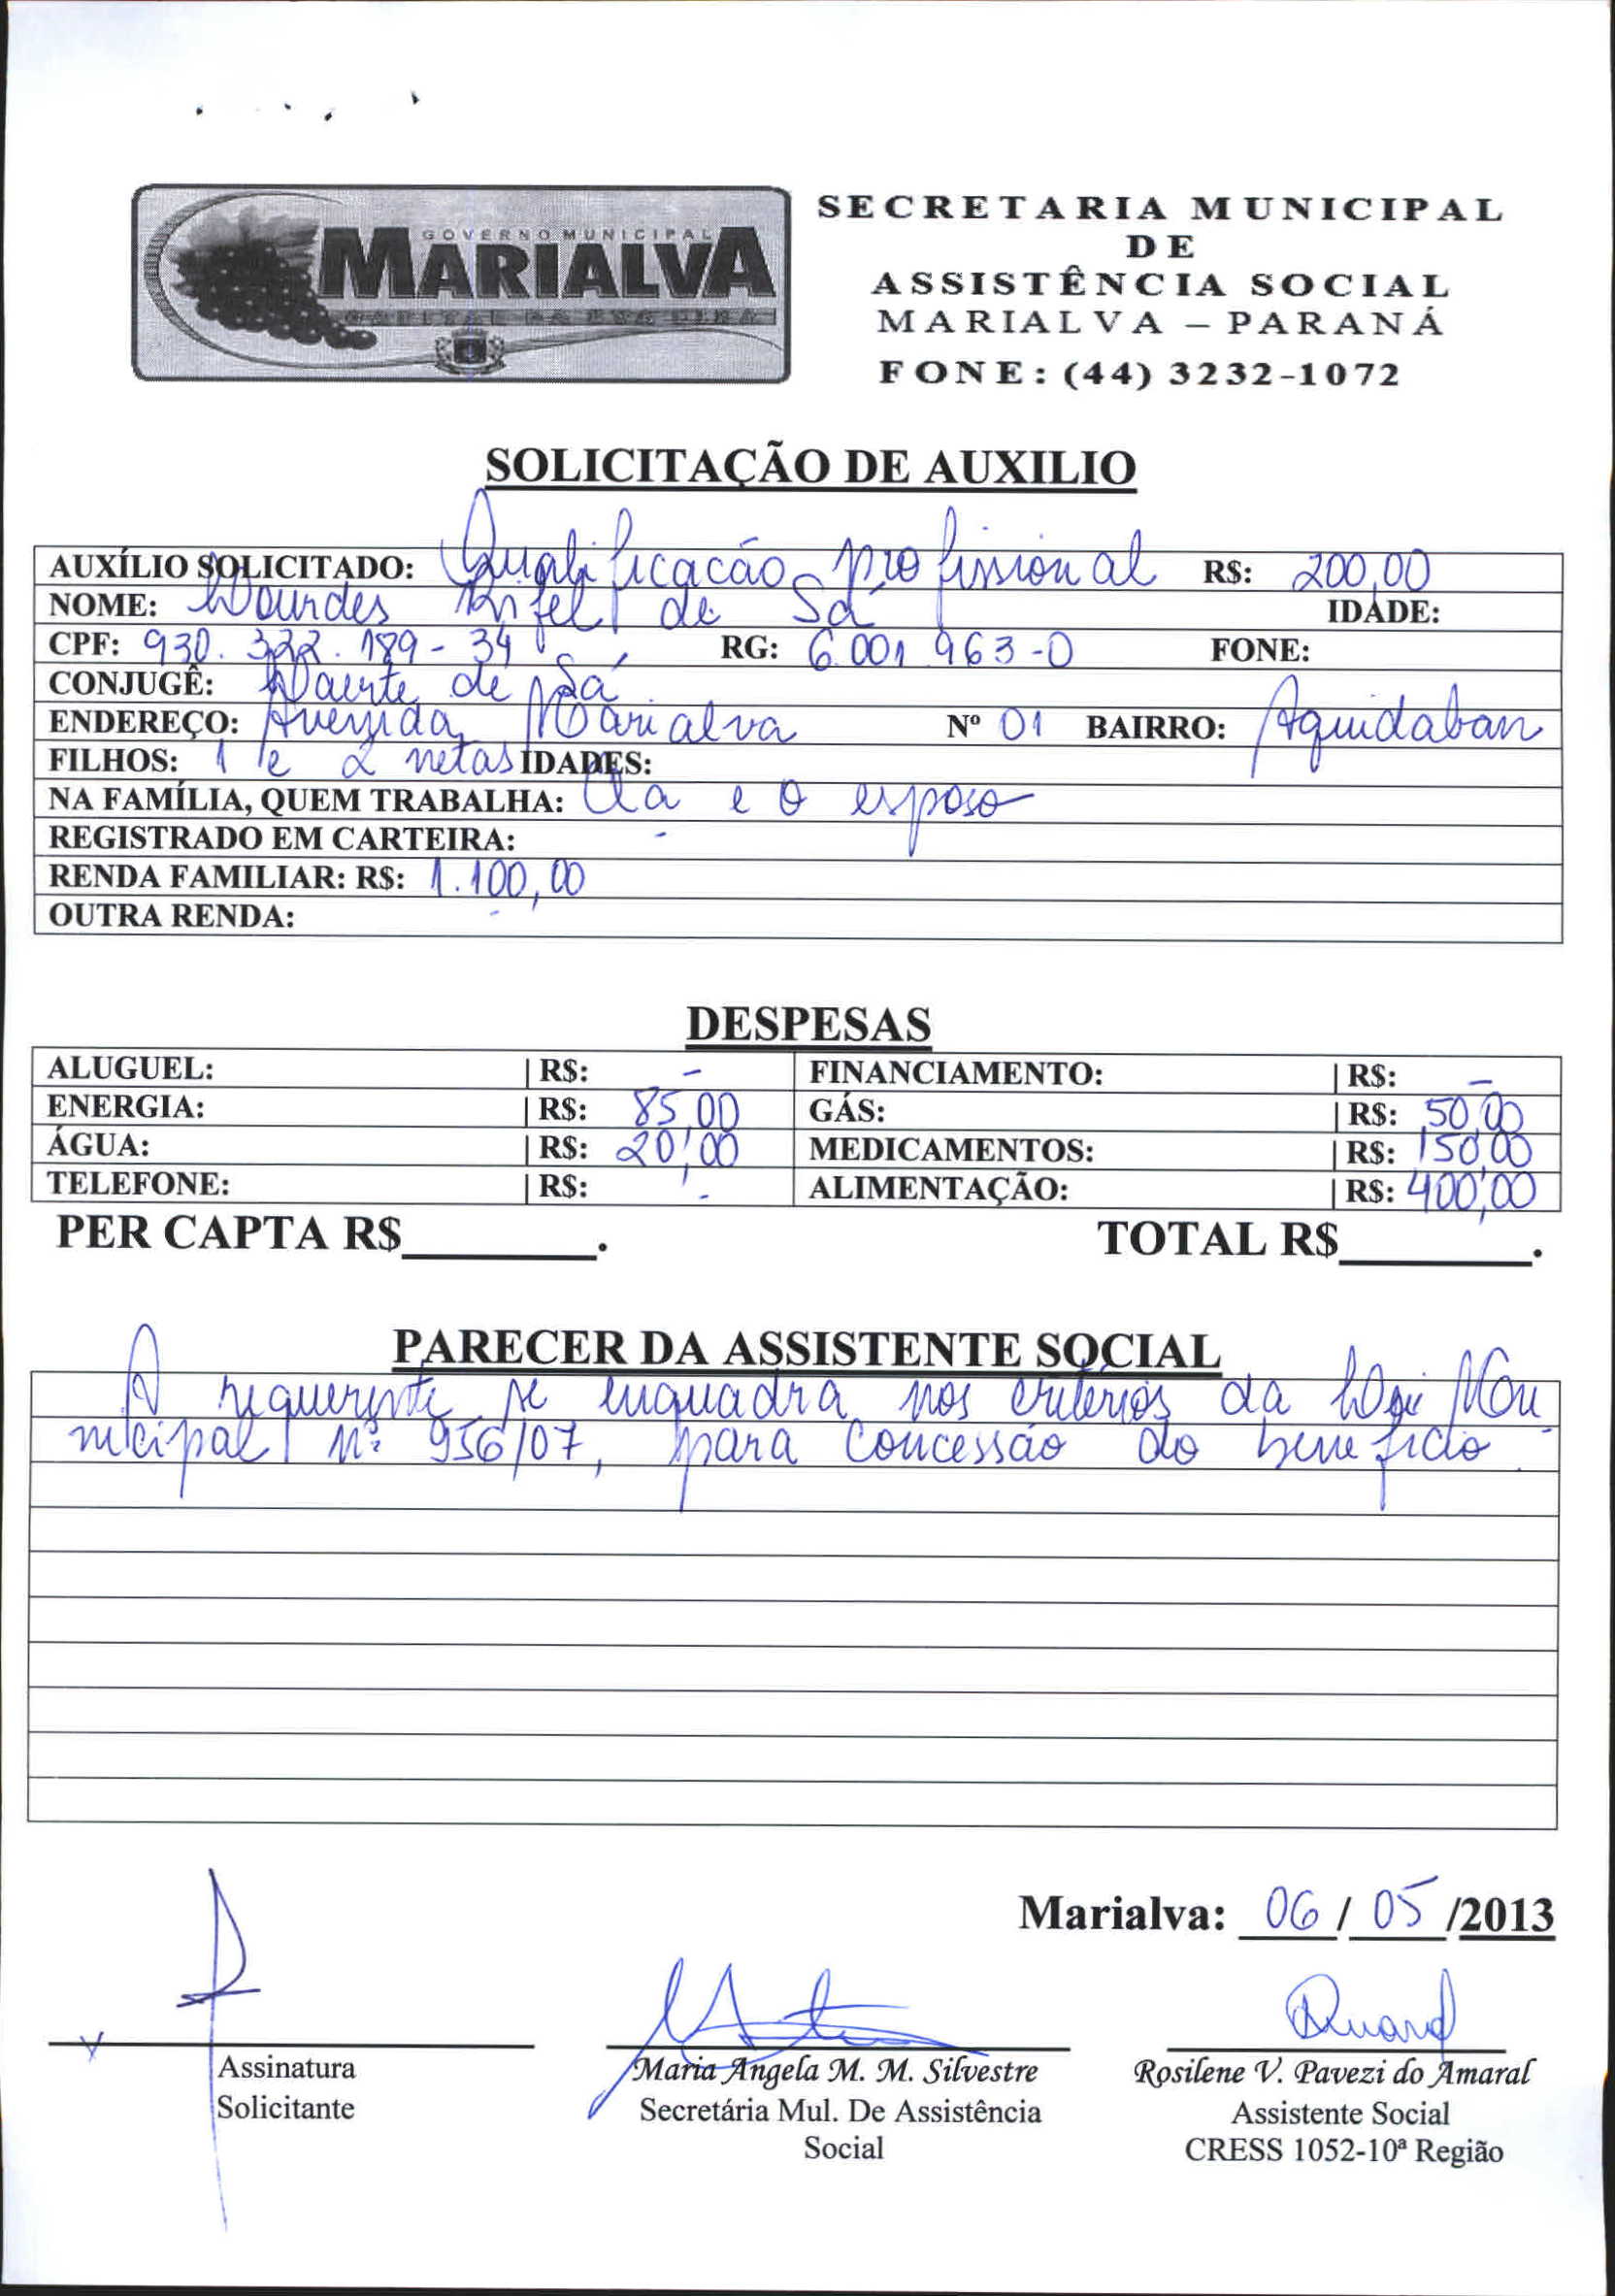 GOVERNO MUNICIPAL
MARIALVA
CAPITAL DA UVA FINA
SECRETARIA MUNICIPAL
DE
ASSISTÊNCIA SOCIAL
MARIALVA – PARANÁ
FONE: (44) 3232-1072
SOLICITAÇÃO DE AUXILIO
AUXÍLIO SOLICITADO: Qualificação profissional R$: 200,00
NOME: Lourdes de Sá IDADE:
CPF: 930.322.189-34 RG: 6.001.963-0 FONE:
CONJUGÊ: Laerte de Sá
ENDEREÇO: Avenida Marialva Nº 01 BAIRRO: Aquidaban
FILHOS: 1 e 2 netas IDADES:
NA FAMÍLIA, QUEM TRABALHA: Ela e o esposo
REGISTRADO EM CARTEIRA: -
RENDA FAMILIAR: R$: 1.100,00
OUTRA RENDA: -
DESPESAS
ALUGUEL: | R$: - FINANCIAMENTO: | R$: -
ENERGIA: | R$: 85,00 GÁS: | R$: 50,00
ÁGUA: | R$: 20,00 MEDICAMENTOS: | R$: 150,00
TELEFONE: | R$: - ALIMENTAÇÃO: | R$: 400,00
PER CAPTA R$________. TOTAL R$________.
PARECER DA ASSISTENTE SOCIAL
A requerente se enquadra nos critérios da Lei Mu-
nicipal nº 956/07, para concessão do benefício.
Marialva: 06 / 05 /2013
Assinatura
Solicitante
Maria Angela M. M. Silvestre
Secretária Mul. De Assistência
Social
Rosilene V. Pavezi do Amaral
Assistente Social
CRESS 1052-10ª Região